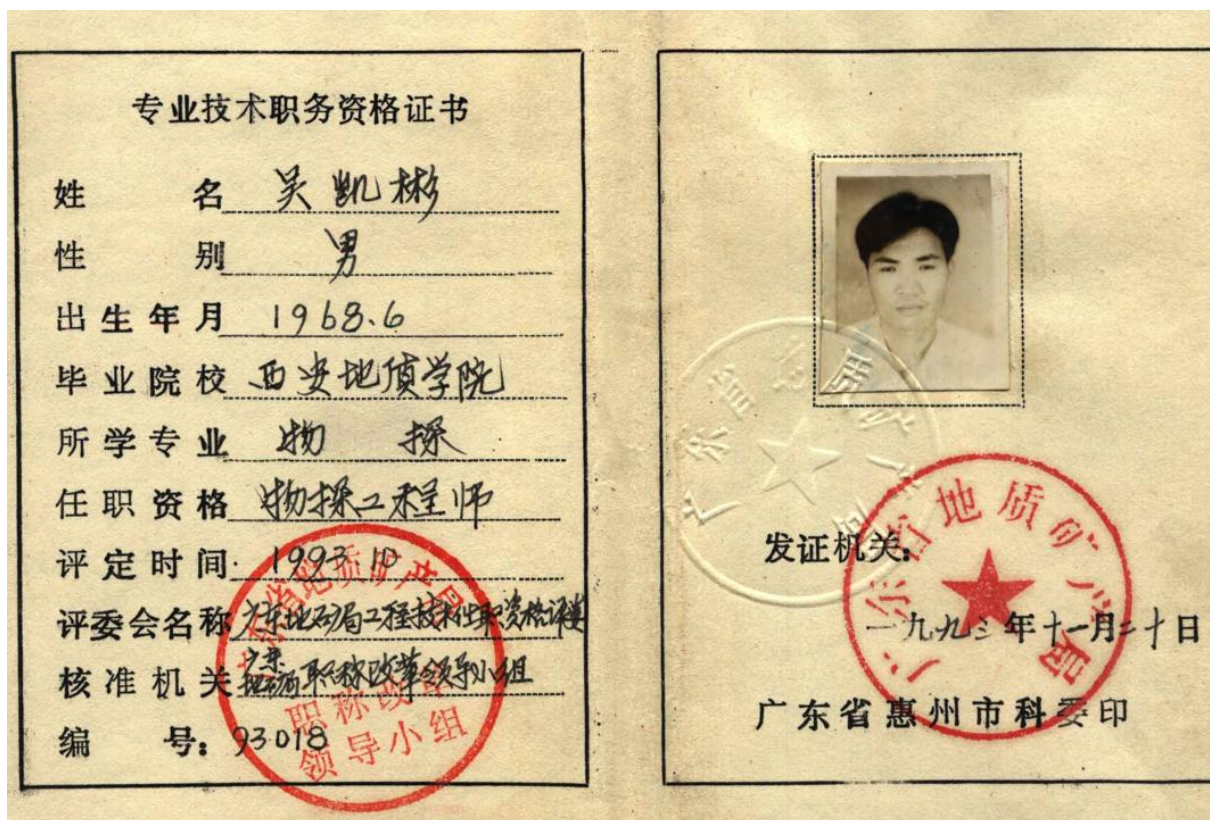 专业技术职务资格证书
姓名 吴凯彬
性别 男
出生年月 1968.6
毕业院校 西安地质学院
所学专业 物探
任职资格 物探工程师
评定时间 1993.10
评委会名称 广东地矿局工程技术任职资格评委
核准机关 广东地矿局职称改革领导小组
编号: 93018
广东省地质矿产局
职称改革
领导小组
广东省地质矿产局
发证机关:
广东省地质矿产局
一九九三年十一月二十日
广东省惠州市科委印